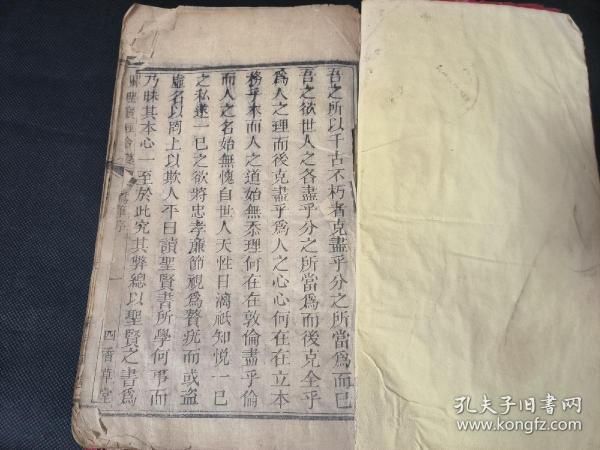 吾之所以千古不朽者克盡乎分之所當為而已
吾之欲世人之各盡乎分之所當為而後克全乎
為人之理而後克盡乎為人之心心何在在立本
務乎本而人之道始無忝理何在在敦倫盡乎倫
而人之名始無愧自世人天性日漓祇知悦一己
之私遂一己之欲將忠孝廉節視為贅疣而或盗
虛名以罔上以欺人平日讀聖賢書所學何事而
乃昧其本心一至於此究其弊總以聖賢之書為
序
一
四香草堂
孔夫子旧书网
www.kongfz.com